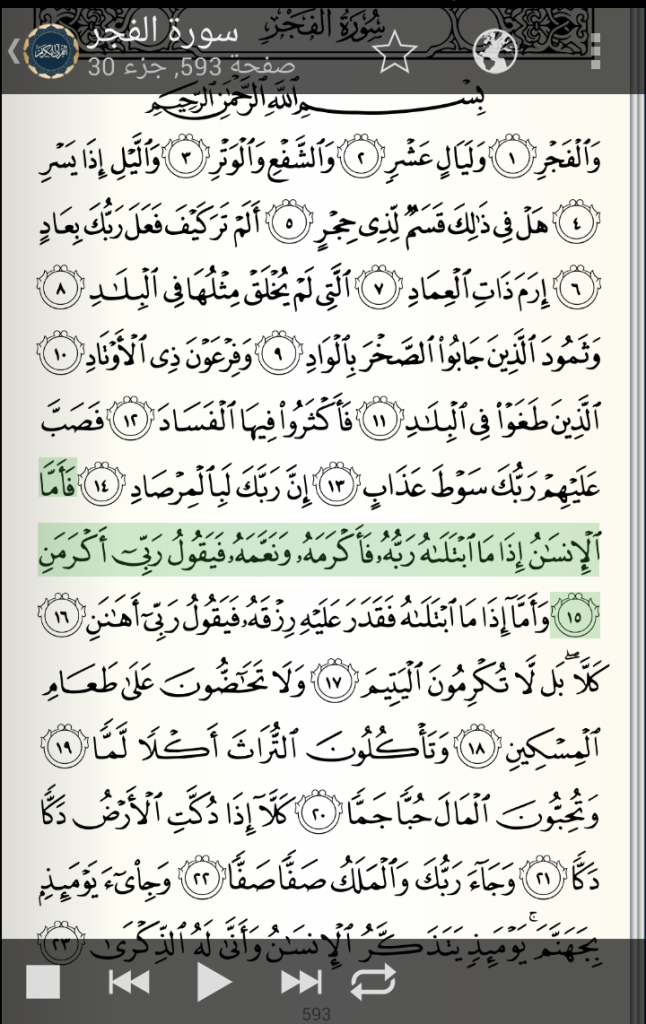 سُورَةُ الفَجْرِ
سورة الفجر
صفحة 593, جزء 30
بِسْمِ ٱللَّهِ ٱلرَّحْمَٰنِ ٱلرَّحِيمِ
وَٱلْفَجْرِ ١ وَلَيَالٍ عَشْرٍ ٢ وَٱلشَّفْعِ وَٱلْوَتْرِ ٣ وَٱلَّيْلِ إِذَا يَسْرِ
٤ هَلْ فِى ذَٰلِكَ قَسَمٌ لِّذِى حِجْرٍ ٥ أَلَمْ تَرَ كَيْفَ فَعَلَ رَبُّكَ بِعَادٍ
٦ إِرَمَ ذَاتِ ٱلْعِمَادِ ٧ ٱلَّتِى لَمْ يُخْلَقْ مِثْلُهَا فِى ٱلْبِلَٰدِ ٨
وَثَمُودَ ٱلَّذِينَ جَابُوا۟ ٱلصَّخْرَ بِٱلْوَادِ ٩ وَفِرْعَوْنَ ذِى ٱلْأَوْتَادِ ١٠
ٱلَّذِينَ طَغَوْا۟ فِى ٱلْبِلَٰدِ ١١ فَأَكْثَرُوا۟ فِيهَا ٱلْفَسَادَ ١٢ فَصَبَّ
عَلَيْهِمْ رَبُّكَ سَوْطَ عَذَابٍ ١٣ إِنَّ رَبَّكَ لَبِٱلْمِرْصَادِ ١٤ فَأَمَّا
ٱلْإِنسَٰنُ إِذَا مَا ٱبْتَلَىٰهُ رَبُّهُۥ فَأَكْرَمَهُۥ وَنَعَّمَهُۥ فَيَقُولُ رَبِّىٓ أَكْرَمَنِ
١٥ وَأَمَّآ إِذَا مَا ٱبْتَلَىٰهُ فَقَدَرَ عَلَيْهِ رِزْقَهُۥ فَيَقُولُ رَبِّىٓ أَهَٰنَنِ ١٦
كَلَّا ۖ بَل لَّا تُكْرِمُونَ ٱلْيَتِيمَ ١٧ وَلَا تَحَٰٓضُّونَ عَلَىٰ طَعَامِ
ٱلْمِسْكِينِ ١٨ وَتَأْكُلُونَ ٱلتُّرَاثَ أَكْلًا لَّمًّا ١٩
وَتُحِبُّونَ ٱلْمَالَ حُبًّا جَمًّا ٢٠ كَلَّآ إِذَا دُكَّتِ ٱلْأَرْضُ دَكًّا
دَكًّا ٢١ وَجَآءَ رَبُّكَ وَٱلْمَلَكُ صَفًّا صَفًّا ٢٢ وَجِا۟ىٓءَ يَوْمَئِذٍۭ
بِجَهَنَّمَ ۚ يَوْمَئِذٍ يَتَذَكَّرُ ٱلْإِنسَٰنُ وَأَنَّىٰ لَهُ ٱلذِّكْرَىٰ ٢٣
593